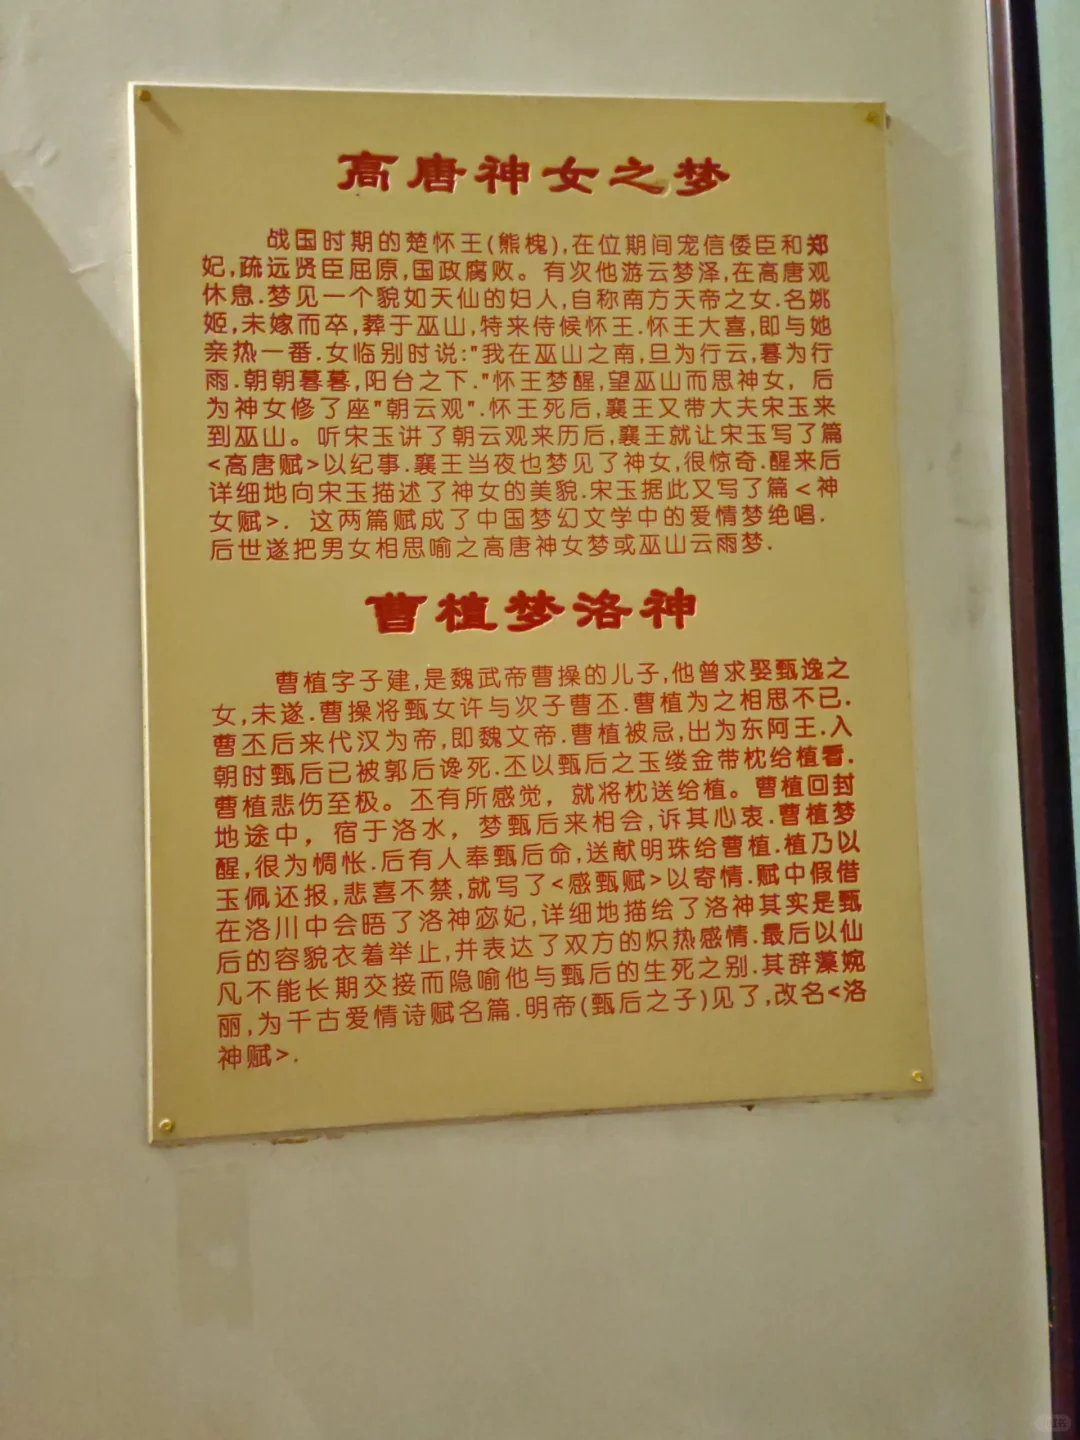 高唐神女之梦
战国时期的楚怀王(熊槐),在位期间宠信倭臣和郑
妃,疏远贤臣屈原,国政腐败。有次他游云梦泽,在高唐观
休息.梦见一个貌如天仙的妇人,自称南方天帝之女.名姚
姬,未嫁而卒,葬于巫山,特来侍候怀王.怀王大喜,即与她
亲热一番.女临别时说:"我在巫山之南,旦为行云,暮为行
雨.朝朝暮暮,阳台之下."怀王梦醒,望巫山而思神女,后
为神女修了座"朝云观".怀王死后,襄王又带大夫宋玉来
到巫山。听宋玉讲了朝云观来历后,襄王就让宋玉写了篇
<高唐赋>以纪事.襄王当夜也梦见了神女,很惊奇.醒来后
详细地向宋玉描述了神女的美貌.宋玉据此又写了篇<神
女赋>.这两篇赋成了中国梦幻文学中的爱情梦绝唱.
后世遂把男女相思喻之高唐神女梦或巫山云雨梦.
曹植梦洛神
曹植字子建,是魏武帝曹操的儿子,他曾求娶甄逸之
女,未遂.曹操将甄女许与次子曹丕.曹植为之相思不已.
曹丕后来代汉为帝,即魏文帝.曹植被忌,出为东阿王.入
朝时甄后已被郭后谗死.丕以甄后之玉缕金带枕给植看.
曹植悲伤至极。丕有所感觉,就将枕送给植。曹植回封
地途中,宿于洛水,梦甄后来相会,诉其心衷.曹植梦
醒,很为惆怅.后有人奉甄后命,送献明珠给曹植.植乃以
玉佩还报,悲喜不禁,就写了<感甄赋>以寄情.赋中假借
在洛川中会晤了洛神宓妃,详细地描绘了洛神其实是甄
后的容貌衣着举止,并表达了双方的炽热感情.最后以仙
凡不能长期交接而隐喻他与甄后的生死之别.其辞藻婉
丽,为千古爱情诗赋名篇.明帝(甄后之子)见了,改名<洛
神赋>.